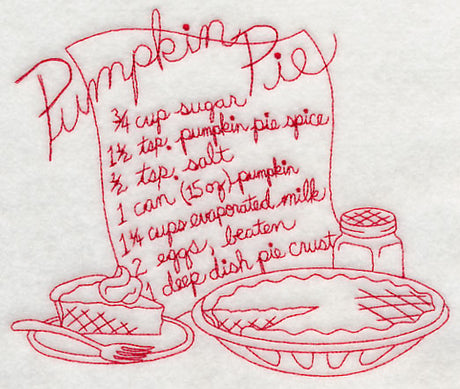 Pumpkin Pie
¾ cup sugar
1½ tsp. pumpkin pie spice
½ tsp. salt
1 can (15 oz) pumpkin
1¼ cups evaporated milk
2 eggs, beaten
1 deep dish pie crust